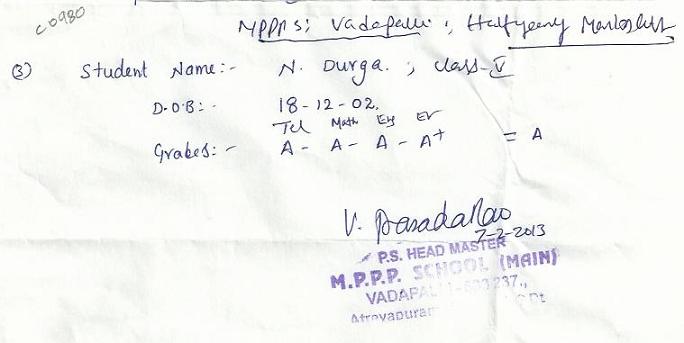 C0980
MPPPS; Vadapalli, Halfyearly Markslist
③ Student Name:- N. Durga., class-V
D.O.B:- 18-12-02.
Tel Math Eng Ev
Grades:- A - A - A - A+ = A
V. Prasada Rao
7-2-2013
P.S. HEAD MASTER
M.P.P.P. SCHOOL (MAIN)
VADAPALLI-533 237.,
Atreyapuram